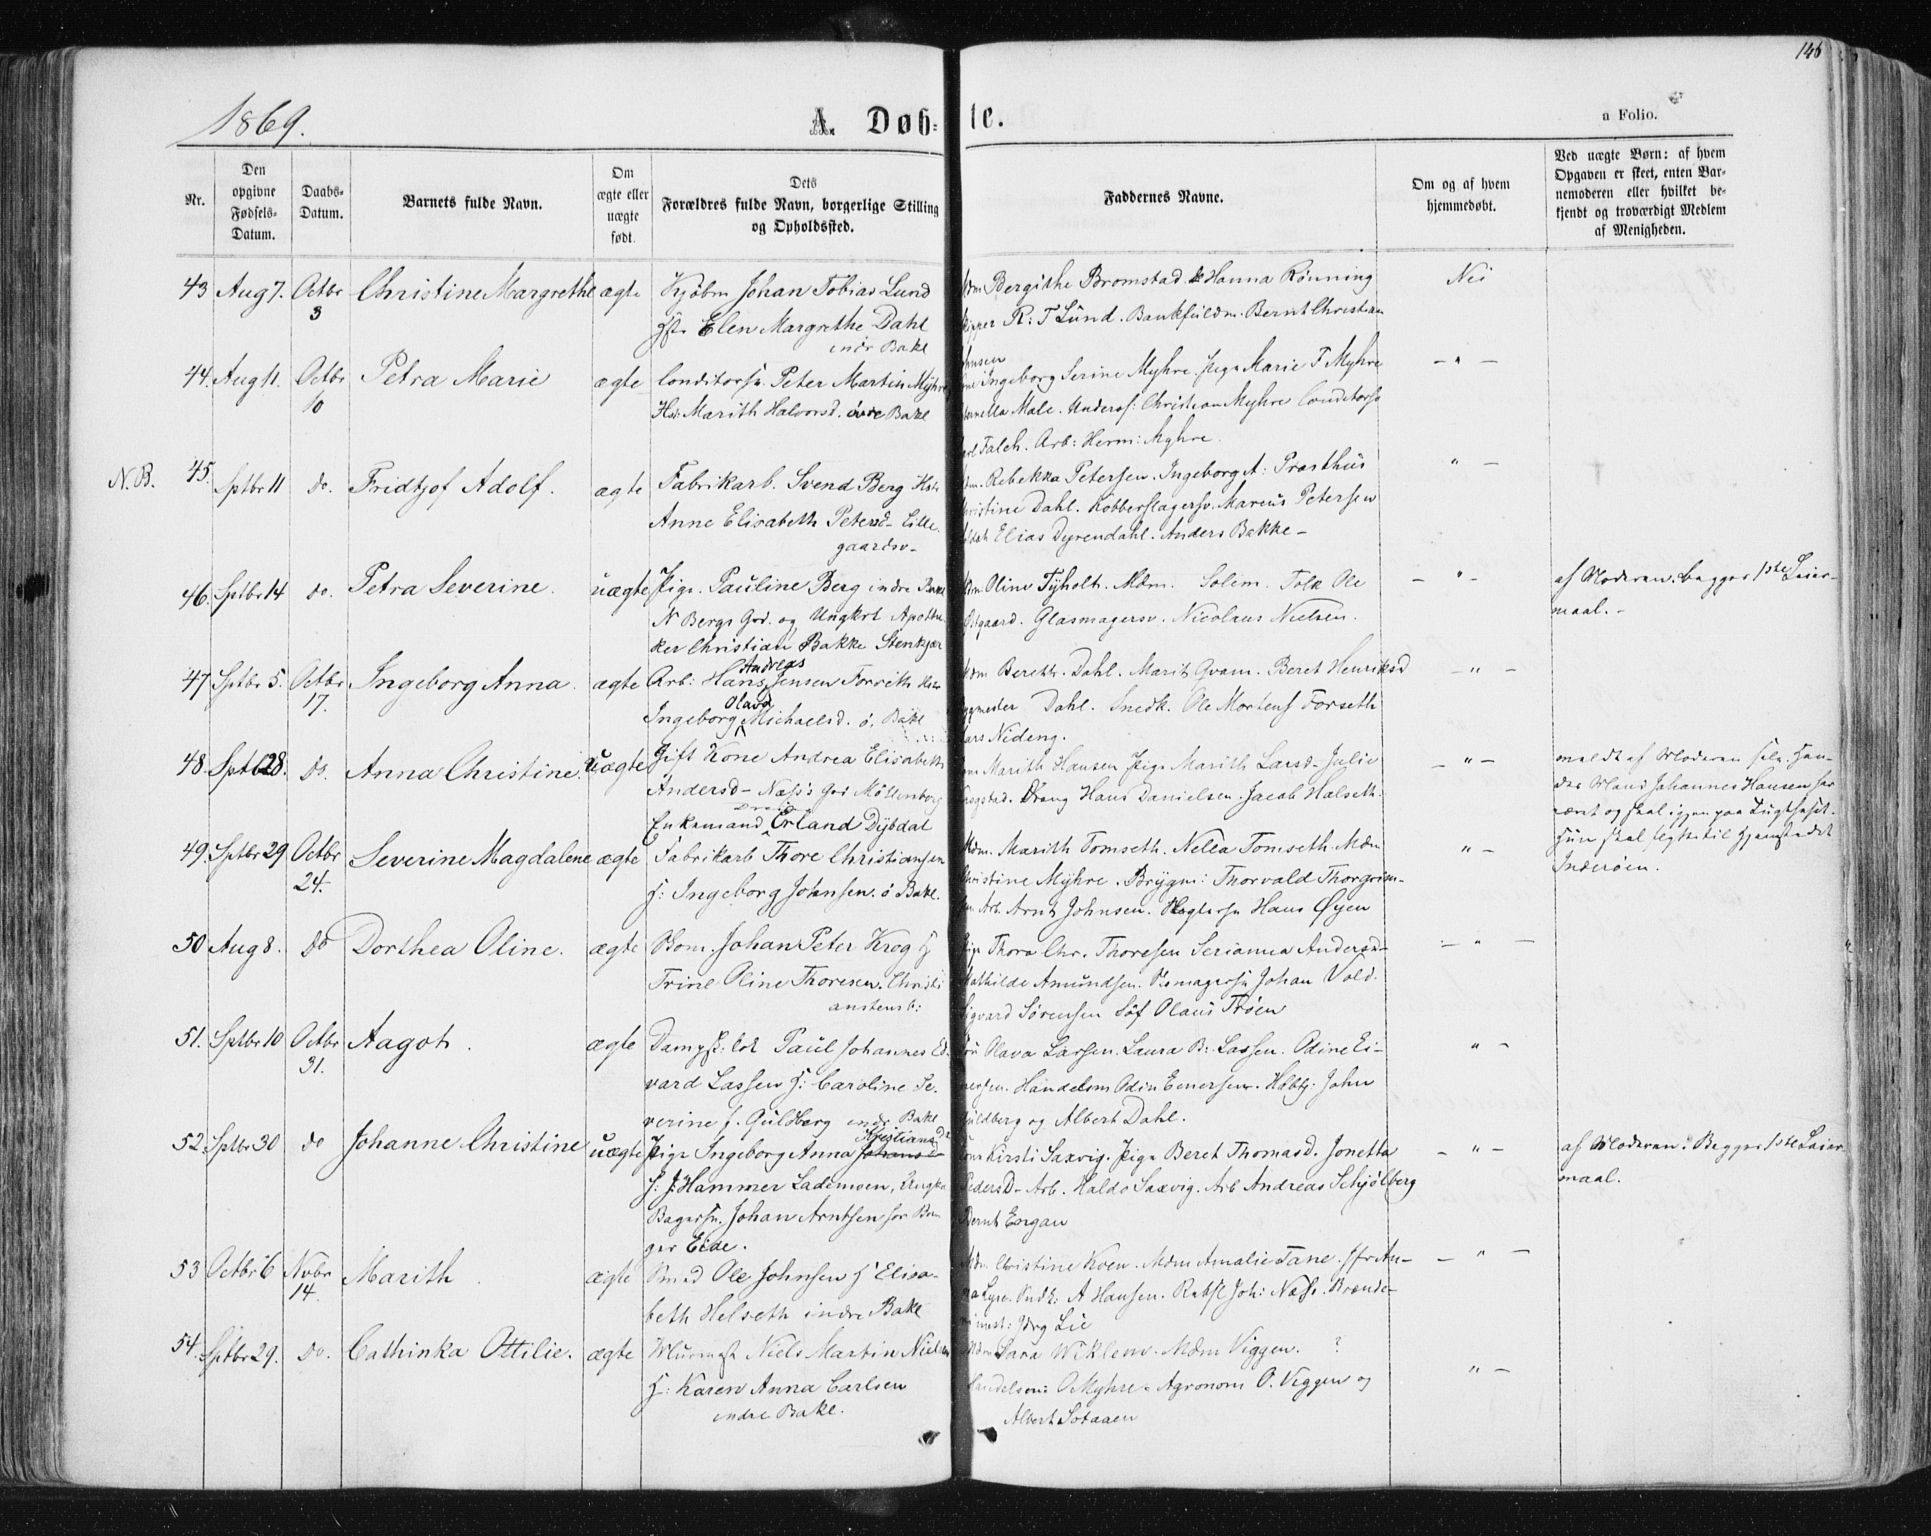 146
1869.
A. Døb= te.
a Folio.
Nr.
Den opgivne Fødsels-Datum.
Daabs-Datum.
Barnets fulde Navn.
Om ægte eller uægte født.
Dets Forældres fulde Navn, borgerlige Stilling og Opholdssted.
Faddernes Navne.
Om og af hvem hjemmedøbt.
Ved uægte Børn: af hvem Opgaven er skeet, enten Barnemoderen eller hvilket bekjendt og troværdigt Medlem af Menigheden.
43 Aug 7. Octbr 3 Christine Margrethe ægte Kjøbm Johan Tobias Lund
Elen Margrethe Dahl
indr Bakl
Bergithe Bromstad Hanna Rønning Nei
R: T Lund. Bankfuldm. Bernt Christian
44. Aug 11. Octbr 10 Petra Marie ægte Conditorsv. Peter Martin Myhre
Marith Halvorsd. øvre Bakl
Ingeborg Serine Myhre. Pige Marie F Myhre — " —
Male. Underof: Christian Myhre Conditorsv
Falch. Arb: Herm: Myhre.
N.B. 45. Sptbr 11 do. Fridtjof Adolf. ægte Fabrikarb. Svend Berg Hstr
Anne Elisabeth Petersd- Lille-
gaardsv-
Rebekka Petersen. Ingeborg A: Præsthus " —
Christine Dahl. Kobberslagersv. Marcus Petersen
Elias Dyrendahl. Anders Bakke —
46. Sptbr 14 do. Petra Severine. uægte Pige. Pauline Berg indre Bakl
N Bergs Grd. og Ungkrl Apothe-
ker Christian Bakke Stenkjær
Oline Tyholt. Mdm. Solem. Tolk Ole — " —
Østgaard. Glasmagersv. Nicolaus Nielsen.
af Moderen. begges 1ste Leier-
maal. —
47 Sptbr 5. Octbr 17. Ingeborg Anna. ægte Arb: Hans Andreas Jensen Forseth
Ingeborg Olava Michaelsd. ø. Bakl
Bereth. Dahl. Marit Gvam. Beret Henriksd — " —
Dahl. Snedk. Ole Mortens Forseth
Lars Nideng.
48. Sptb 28. do. Anna Christine. uægte Gift Kone Andrea Elisabeth
Andersd — Næss's Grd Møllenberg
Enkemand Erland Dybdal
Marith Hansen Pige Marith Larsd— Julie — " —
Krogstad. Dreng Hans Danielsen. Jacob Halseth.
meldt af Moderen selv. Hen-
des Mand Johannes Hansen har
været og skal igjen paa Tugthuset.
Hun skal flytte til Hjemstedet
Inderøen.
49. Sptbr 29 Octbr 24. Severine Magdalene ægte Fabrikarb Thore Christiansen
H: Ingeborg Johnsen. ø Bakl.
Mdm. Marith Tomseth. Nella Tomseth. Mdm " —
Christine Myhre. Brygm: Thorvald Thorgrim-
Arb. Arnt Johnsen. Hans Øyen
50 Aug 8. Do Dorthea Oline. ægte Bom. Johan Peter Krog H
Trine Oline Thoresen. Christi
anstensb:
Thora Chr. Thoresen Serianna Andersd- — " —
Mathilde Amundsen. Johan Vold.
Sigvard Sørensen Olaus Trøen
51. Sptbr 10 Octbr 31. Aagot. ægte Paul Johannes Ed-
vard Lassen H: Caroline Se-
verine f. Guldberg indr Bakl
Olava Larsen. Laura B: Lassen. Odine Ei- " —
nersen. Handelsm Odin Einersen. John
Guldberg og Albert Dahl.
52 Sptbr 30 do Johanne Christine uægte Pige Ingeborg Anna Johansd Kristiansd
J. Hammer Lademoen, Ungk
Bagersv. Johan Arntsen for Bom
ger Eide.
Kirsti Saxvig. Pige Beret Thomasd. Jonetta — " —
Pedersd— Arb. Haldo Saxvig. Arb Andreas Schjølberg
Bernt Engan
af Moderen. Begges 1ste Leier-
maal.
53 Octbr 6 Novbr 14. Marith. ægte Smed Ole Johnsen H Elisa-
beth Helseth indre Bakl
Mdm. Christine Koen. Mdm Amalie Tane. Jfr An- — " —
na Lyre. Sndk: A Hansen. Joh: Næss. Brænde-
Lie
54. Sptbr 29. Do. Cathinka Ottilie. ægte Murmest Niels Martin Nielsen
H: Karen Anna Carlsen
indre Bakl.
Mdm Sara Wiklem. Mdm Viggen. ? " —
Handelsm: O Myhre. Agronom O. Viggen og
Albert Sotaaen